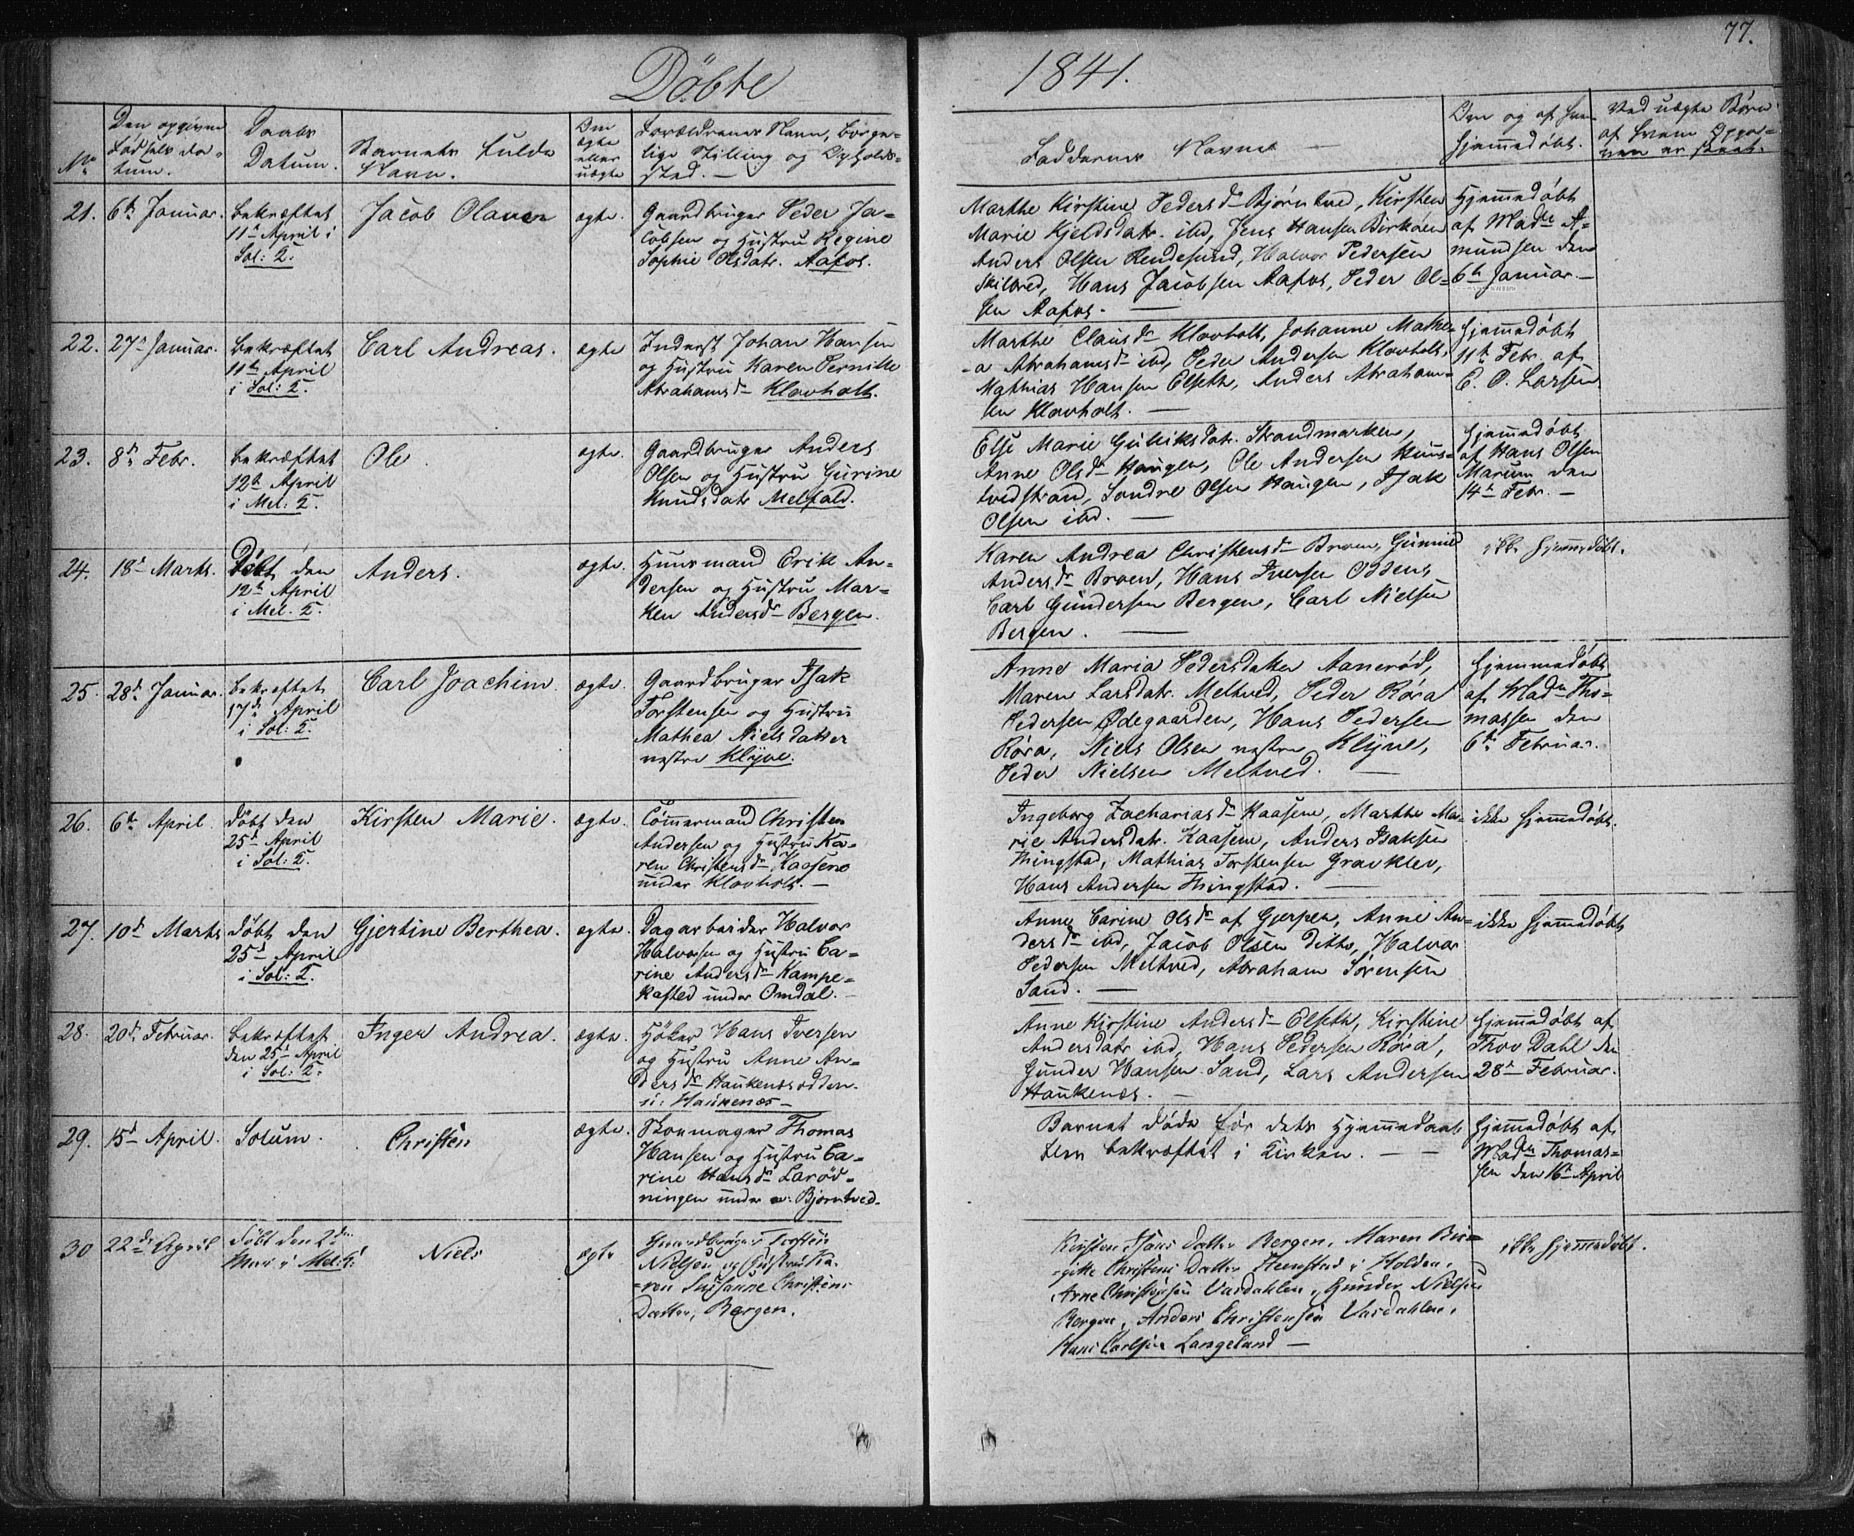 77.
Døbte 1841.
No
Den opgivne Fødsels datum.
Daabs Datum.
Barnets fulde Navn.
Om ægte eller uægte
Forældrenes Navn, borgelige Stilling og Opholdssted. —
Faddernes Navne —
Om og af hvem hjemmedøbt.
Ved uægte Børn af hvem Opgaven er skeet.
21.
6te Januar.
bekræftet
11te April i
Sol: K.
Jacob Olaves
ægte.
Gaardbruger Peder Ja-
cobsen og Hustru Regine
Sophie Olsdatr. Aafos.
Marthe Kirstine Pedersdr Bjørntved, Kirsten
Marie Kjeldsdatr. ibd, Jens Hansen Birkøen
Anders Olsen Rendesund, Halvor Pedersen
Skilbred, Hans Jacobsen Aafos, Peder Ol-
sen Aafos. —
Hjemmedøbt
af Made A-
mundsen den
6te Januar. —
22.
27de Januar.
bekræftet
11te April
i Sol: K.
Carl Andreas.
ægte
Inderst Johan Hansen
og Hustru Karen Pernille
Abrahamsdr Klovholt.
Marthe Clausdr Klovholt, Johanne Mathe-
a Abrahamsdr ibd, Peder Andersen Klovholt,
Mathias Hansen Elseth, Anders Abraham-
sen Klovholt. —
hjemmedøbt
11te Febr. af
C. O. Larsen
23.
8de Febr.
bekræftet
12te April
i Mel: K.
Ole.
ægte.
Gaardbruger Anders
Olsen og Hustru Gurine
Knudsdatr Melfald.
Else Marie Gulliksdatr. Strandmarken,
Anne Olsdr Haugen, Ole Andersen
Sondre Olsen Haugen, Isak
Olsen ibd. —
hjemmedøbt
af Hans Olsen
Marum den
14te Febr. —
24.
18de Marts.
Døbt den
12te April
i Mel. K.
Anders.
ægte.
Huusmand Erik An-
dersen og Hustru Mar-
ken Andersdr Bergen.
Karen Andrea Christensdr Broen, Gunnild
Andersdr Broen, Hans Iversen
Carl Gundersen Bergen, Carl Nielsen
Bergen. —
ikke hjemmedøbt.
25.
28de Januar.
bekræftet
17de April
i Sol: K.
Carl Joachim
ægte.
Gaardbruger Isak
Torstensen og Hustru
Mathea Nielsdatter
nestre Klyve.
Anne Maria Pedersdatter Aanerød,
Maren Larsdatr. Meltved, Peder Røra
Pedersen Ødegaarden, Hans Pedersen
Røra, Niels Olsen nestre Klyve,
Peder Nielsen Meltved. —
hjemmedøbt
af Made Tho-
massen den
6te Februar.
26.
6te April
døbt den
25de April
i Sol: K.
Kirsten Marie.
ægte.
Tømmermand Christen
Andersen og Hustru Ka-
ren Christensdr Kaasene
under Klovholt. —
Ingeborg Zachariasdr Kaasene, Marthe Ma-
rie Andersdatr. Kaasene, Anders Isaksen
Thingstad, Mathias Torstensen Gravklev,
Hans Andersen Thingstad. —
ikke hjemmedøbt.
27.
10de Marts
døbt den
25de April
i Sol: K.
Gjertine Berthea.
ægte.
Dagarbeider Halvor
Halvorsen og Hustru Ca-
rine Andersdr Kampe-
kasted under Omdal. —
Anne Carine Olsdr af Gjerpen, Anne An-
dersdr ibd, Jacob Olsen ditto, Halvor
Pedersen Meltved, Abraham Sørensen
Sand. —
ikke hjemmedøbt
28.
20de Februar.
bekræftet
den 25de April
i Sol: K.
Inger Andrea.
ægte.
Høker Hans Iversen
og Hustru Anne An-
dersdr Haukenæsodden
u: Haukenæs —
Anne Kirstine Andersdr Elseth, Kirstine
Andersdatr ibd, Hans Pedersen Røra,
Gunder Hansen Sand, Lars Andersen
Haukenæs. —
hjemmedøbt af
Thov Dahl den
28de Februar.
29.
15de April.
Solum.
Christen
ægte.
Skomager Thomas
Hansen og Hustru Ca-
rine Hansdr Larød-
ningen under Bjørntved.
Barnet døde før dets Hjemmedaab
blev bekræftet i Kirken. — —
hjemmedøbt af
Made Thomas-
sen den 16de April
30
22de April
Døbt den 2den
Mai i Mel: K:
Niels
ægte
Gaardbruger Torsten
Nielsen og Hustru Ka-
ren Susanne Christens
Datter, Bergen.
Kirsten Datter Bergen, Maren Bir-
gitte Christens Datter Hemstad i Holden,
Arne Christensen Vasdahlen, Gunder Nielsen
Bergen, Anders Christensen Vasdahlen,
Hans Carlsen Langeland —
ikke hjemmedøbt.